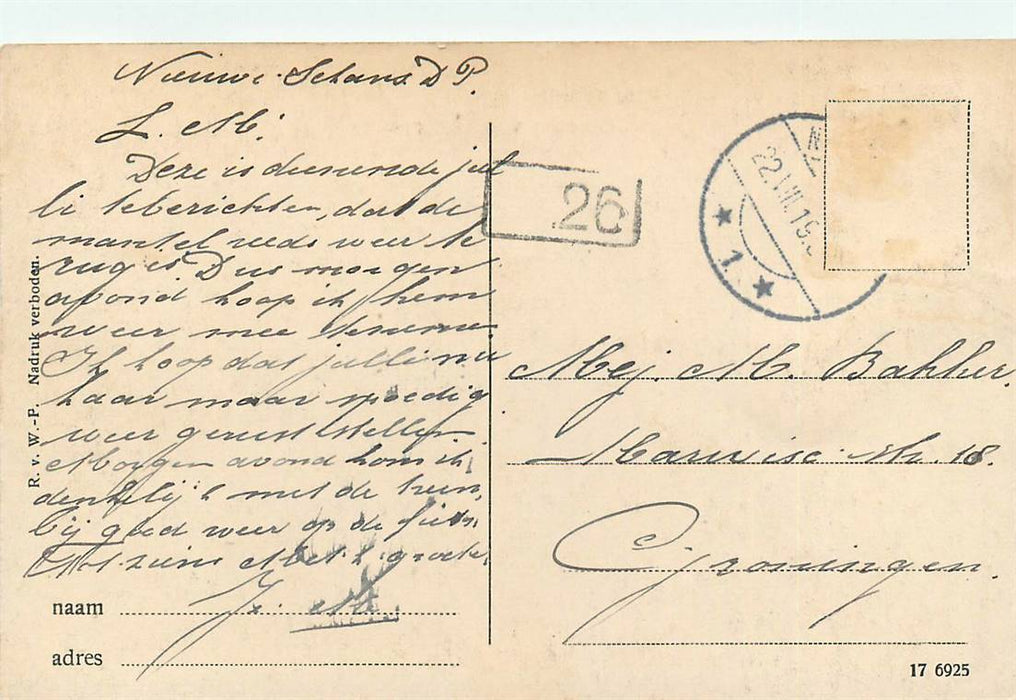 Nieuwe-Schans. D P.
L. M.
Deze is dienende jul
li te berichten, dat de
mantel reeds weer te
rug is Dus morgen
avond hoop ik hem
weer mee te nemen
Ik hoop dat jullie nu
haar maar spoedig
weer gerust stellen
Morgen avond kom ik
denkelijk met de trein,
bij goed weer op de fiets.
Tot ziens Met groete
J.
naam
adres
R. v. W.-P. Nadruk verboden.
26
N
22.VII.19
1
Mej. M. Bakker.
str. 18.
Groningen.
17 6925